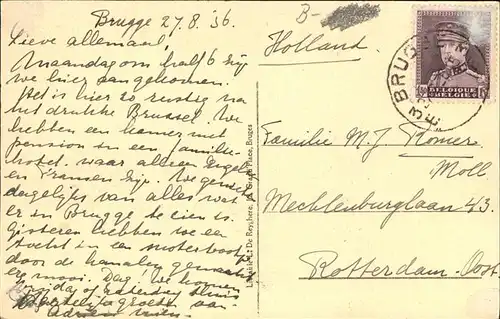 Brugge 27.8.'36.
Lieve allemaal,
Maandag om half 6 zijn
we hier aangekomen.
Het is hier zo rustig na
het drukke Brussel. We
hebben een kamer met
pension in een familie-
hotel. waar alleen Engelsen
en Fransen zijn. We genieten
dagelijks van alles wat
er in Brugge te zien is.
Gisteren hebben we een
tocht in een motorboot
door de kanalen gemaakt
erg mooi. Dag! We komen
of Zaterdag thuis
Hartelijk groeten aan
B-
Holland.
BRUGGE
BELGIQUE
BELGIË
Familie M. J. Romer
Moll.
Mecklenburglaan 43.
Rotterdam-Oost.